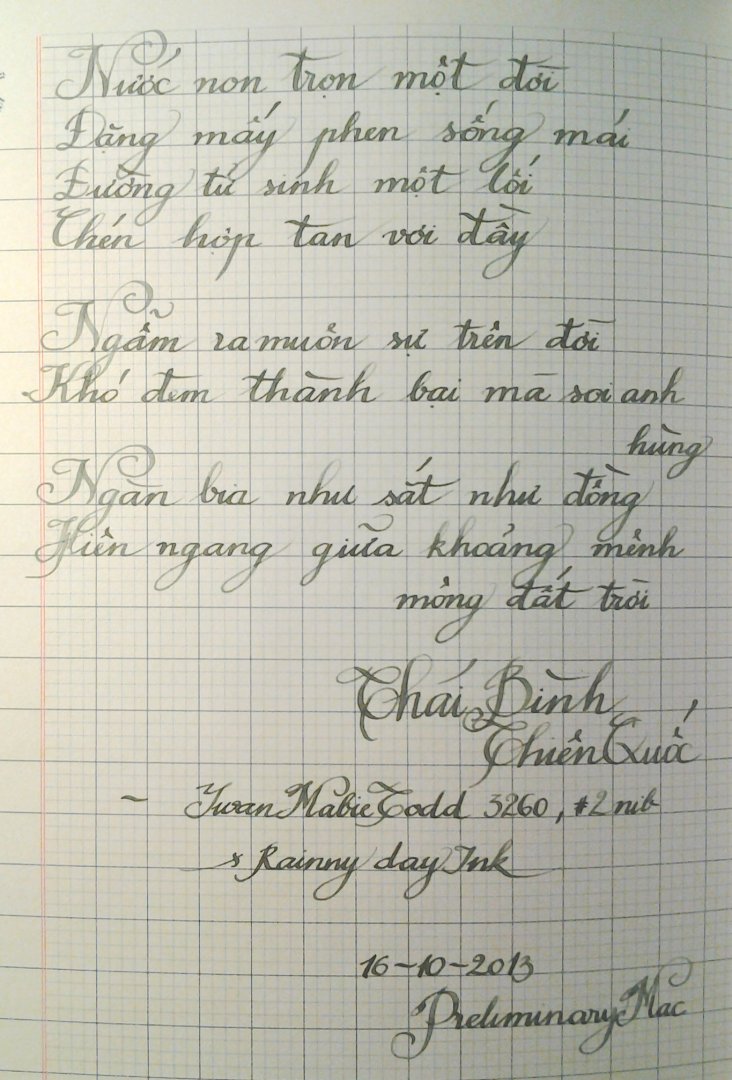 Nước non trọn một đời
Đặng mấy phen sống mái
Đường tử sinh một lối
Chén hợp tan vơi đầy
Ngẫm ra muôn sự trên đời
Khó đem thành bại mà soi anh
hùng
Ngàn bia như sắt như đồng
Hiên ngang giữa khoảng mênh
mông đất trời
Thái Bình
Thiên Quốc
- Swan Mabie Todd 3260, #2 nib
x Rainny day Ink
16-10-2013
PreliminaryMac